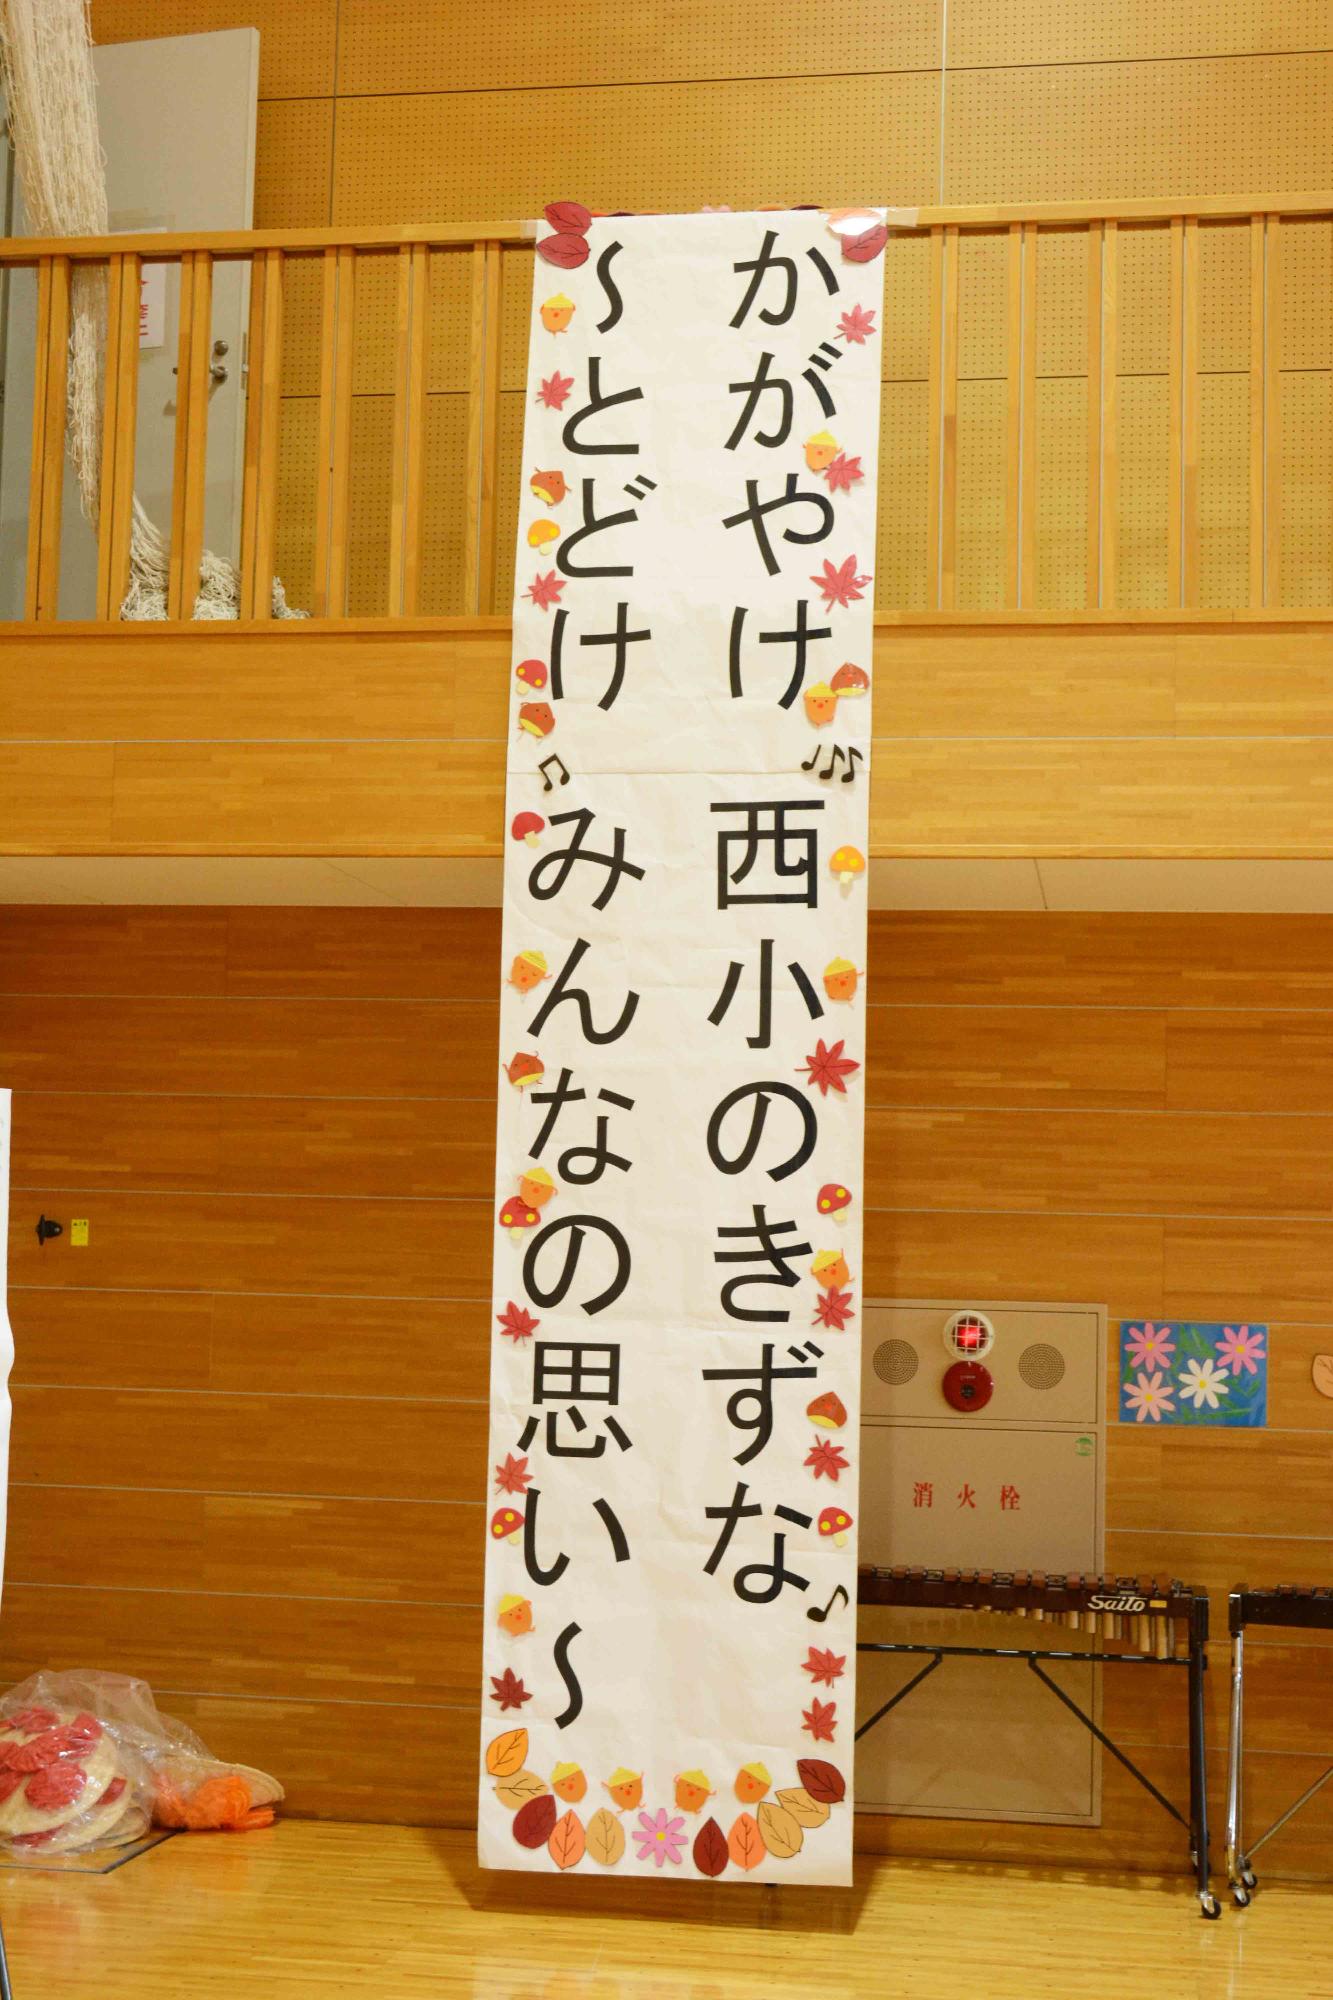 かがやけ 西小のきずな
～とどけ みんなの思い～
消火栓
Saito